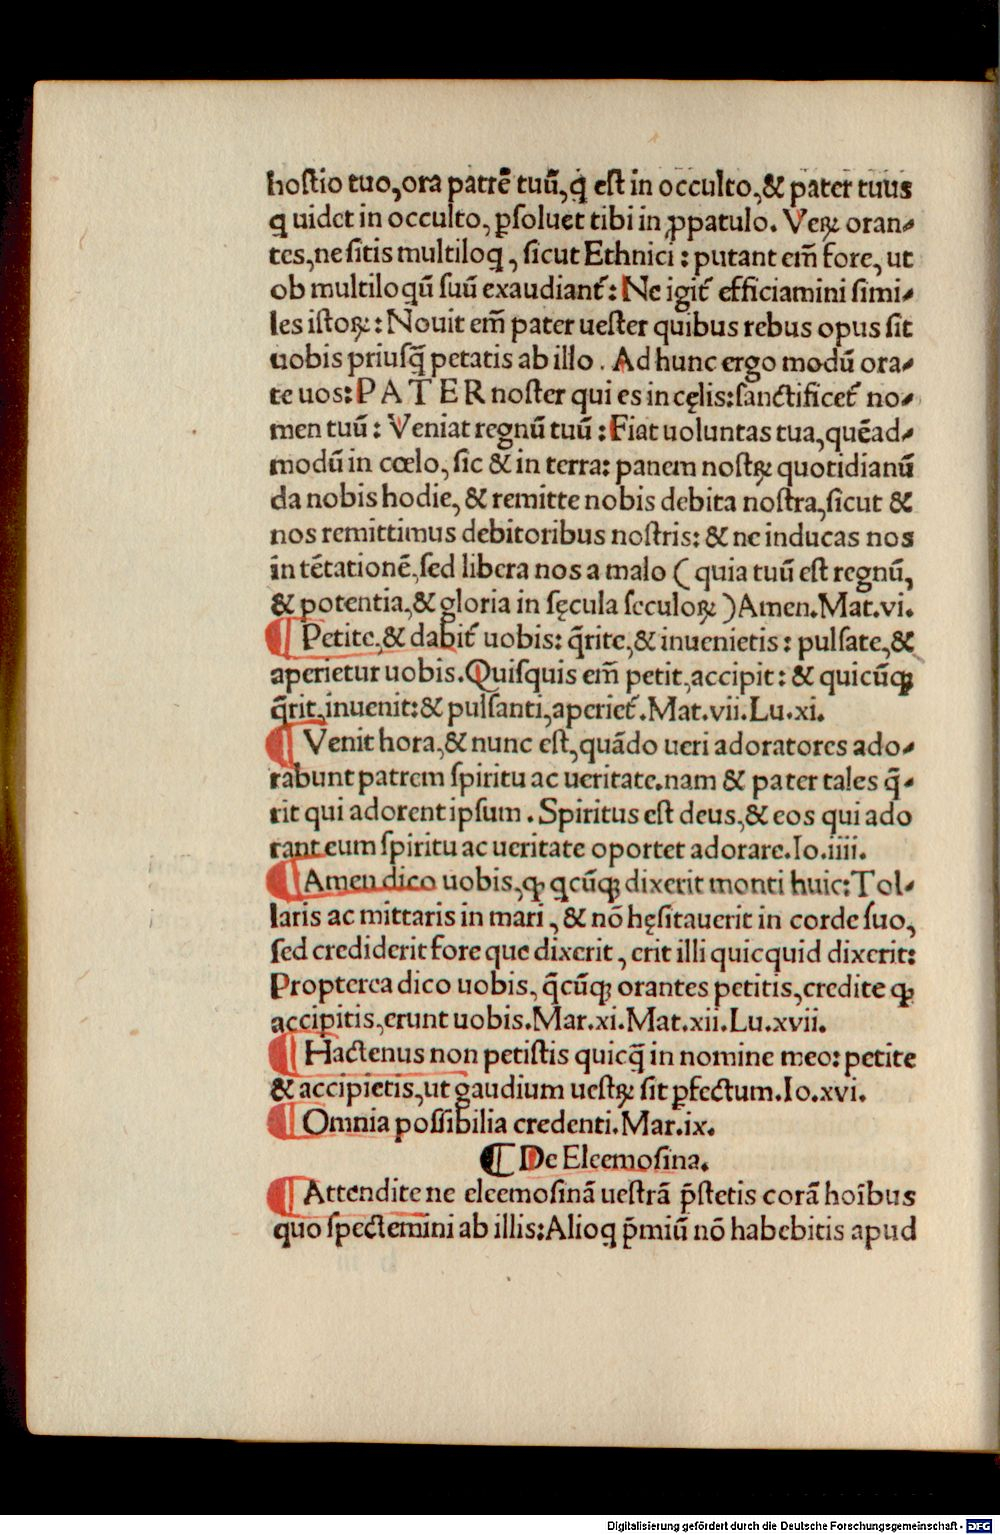 hoſtio tuo, ora patrē tuū, q̇ eſt in occulto, & pater tuus
q uidet in occulto, ꝑſoluet tibi in ꝓpatulo. Veꝝ oran-
tes, ne ſitis multiloq̇, ſicut Ethnici: putant em̄ fore, ut
ob multiloq̇ū ſuū exaudianť: Ne igiť efficiamini ſimi-
les iſtoꝝ: Nouit em̄ pater ueſter quibus rebus opus ſit
uobis priuſq̄ petatis ab illo. Ad hunc ergo modū ora-
te uos: PATER noſter qui es in cęlis: ſanctificeť no-
men tuū: Veniat regnū tuū: Fiat uoluntas tua, quēad-
modū in cœlo, ſic & in terra: panem noſtꝝ quotidianū
da nobis hodie, & remitte nobis debita noſtra, ſicut &
nos remittimus debitoribus noſtris: & ne inducas nos
in tētationē, ſed libera nos a malo ( quia tuū eſt regnū,
& potentia, & gloria in ſęcula ſeculoꝝ ) Amen. Mat. vi.
¶ Petite, & dabiť uobis: q̄rite, & inuenietis: pulſate, &
aperietur uobis. Quiſquis em̄ petit, accipit: & quicūqꝫ
q̄rit, inuenit: & pulſanti, aperieť. Mat. vii. Lu. xi.
¶ Venit hora, & nunc eſt, quādo ueri adoratores ado-
rabunt patrem ſpiritu ac ueritate. nam & pater tales q̄-
rit qui adorent ipſum. Spiritus eſt deus, & eos qui ado
rant eum ſpiritu ac ueritate oportet adorare. Io. iiii.
¶ Amen dico uobis, ꝙ q̇cūqꝫ dixerit monti huic: Tol-
laris ac mittaris in mari, & nō hęſitauerit in corde ſuo,
ſed crediderit fore que dixerit, erit illi quicquid dixerit:
Propterea dico uobis, q̄cūqꝫ orantes petitis, credite ꝙ
accipitis, erunt uobis. Mar. xi. Mat. xii. Lu. xvii.
¶ Hactenus non petiſtis quicq̄ in nomine meo: petite
& accipietis, ut gaudium ueſtꝝ ſit ꝑfectum. Io. xvi.
¶ Omnia poſſibilia credenti. Mar. ix.
¶ De Eleemoſina.
¶ Attendite ne eleemoſinā ueſtrā p̄ſtetis corā hoībus
quo ſpectemini ab illis: Alioq̇ p̄miū nō habebitis apud
Digitalisierung gefördert durch die Deutsche Forschungsgemeinschaft - DFG